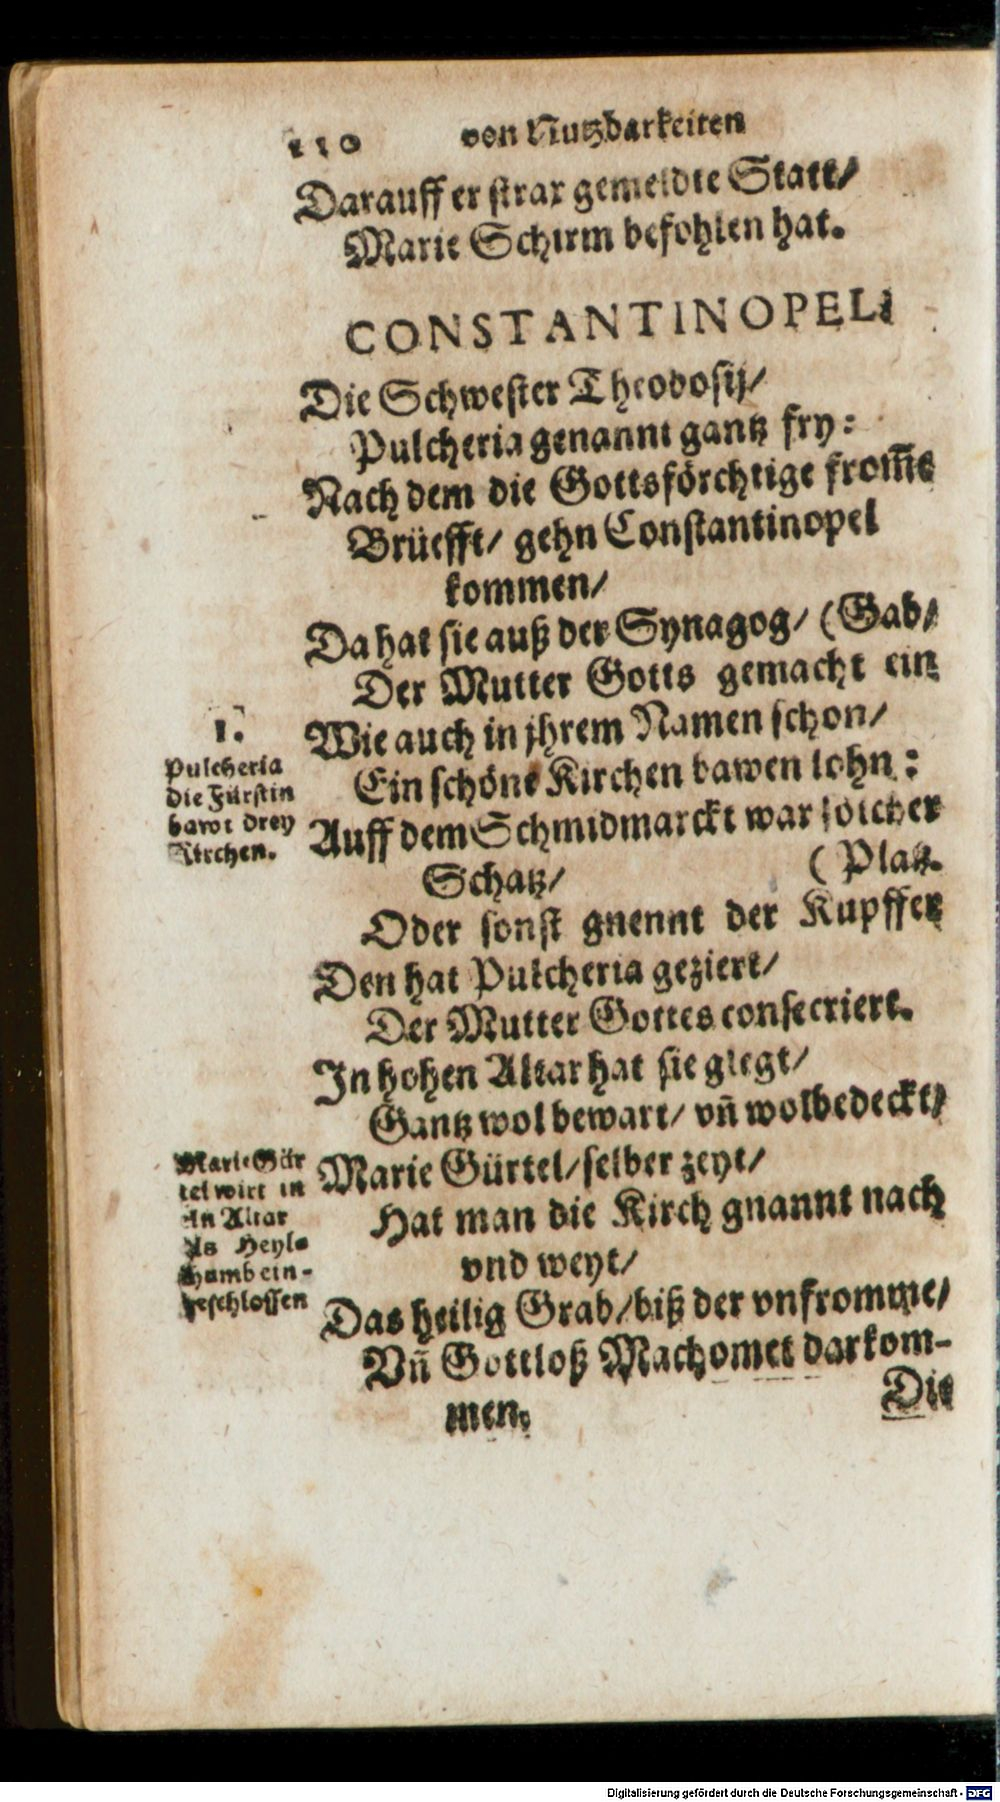 110 von Nutzbarkeiten
Darauff er strax gemeldte Statt/
Marie Schirm befohlen hat.
CONSTANTINOPEL.
Die Schwester Theodosij/
Pulcheria genannt gantz fry:
Nach dem die Gottsförchtige from̃e
Brüefft/ gehn Constantinopel
kommen/
Da hat sie auß der Synagog/ (Gab/
Der Mutter Gotts gemacht ein
Wie auch in jhrem Namen schon/
Ein schöne Kirchen bawen lohn:
1.
Pulcheria
die Fürstin
bawt drey
Kirchen.
Auff dem Schmidmarckt war solcher
Schatz/ (Platz.
Oder sonst gnennt der Kupffer
Den hat Pulcheria geziert/
Der Mutter Gottes consecriert.
In hohen Altar hat sie glegt/
Gantz wol bewart/ vñ wolbedeckt/
Marie Gür
tel wirt in
ein Altar
als Heyl-
thumb ein-
geschlossen
Marie Gürtel/ selber zeyt/
Hat man die Kirch gnannt nach
vnd weyt/
Das heilig Grab/ biß der vnfromme/
Vñ Gottloß Machomet darkom-
men.
Die
Digitalisierung gefördert durch die Deutsche Forschungsgemeinschaft - DFG